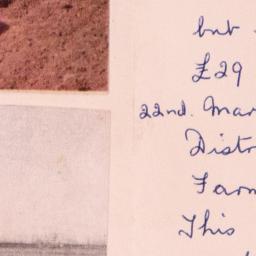 but
£29
22nd. Mar
Distr
Farm
This